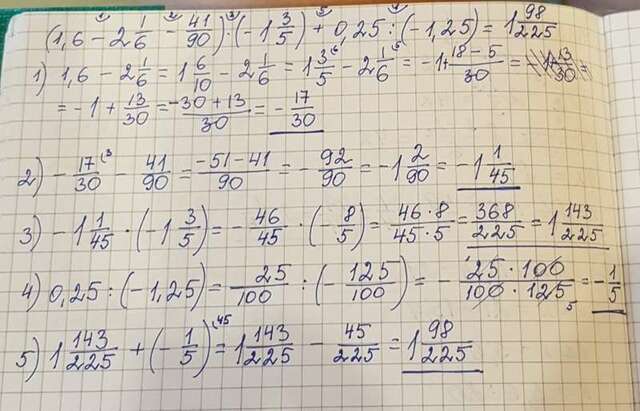 (1,6 - 2 1/6 - 41/90) · (-1 3/5) + 0,25 : (-1,25) = 1 98/225
1) 1,6 - 2 1/6 = 1 6/10 - 2 1/6 = 1 3/5 - 2 1/6 = -1 + (18 - 5)/30 =
= -1 + 13/30 = (-30 + 13)/30 = -17/30
2) -17/30 - 41/90 = (-51 - 41)/90 = -92/90 = -1 2/90 = -1 1/45
3) -1 1/45 · (-1 3/5) = -46/45 · (-8/5) = (46 · 8)/(45 · 5) = 368/225 = 1 143/225
4) 0,25 : (-1,25) = 25/100 : (-125/100) = -(25 · 100)/(100 · 125) = -1/5
5) 1 143/225 + (-1/5) = 1 143/225 - 45/225 = 1 98/225